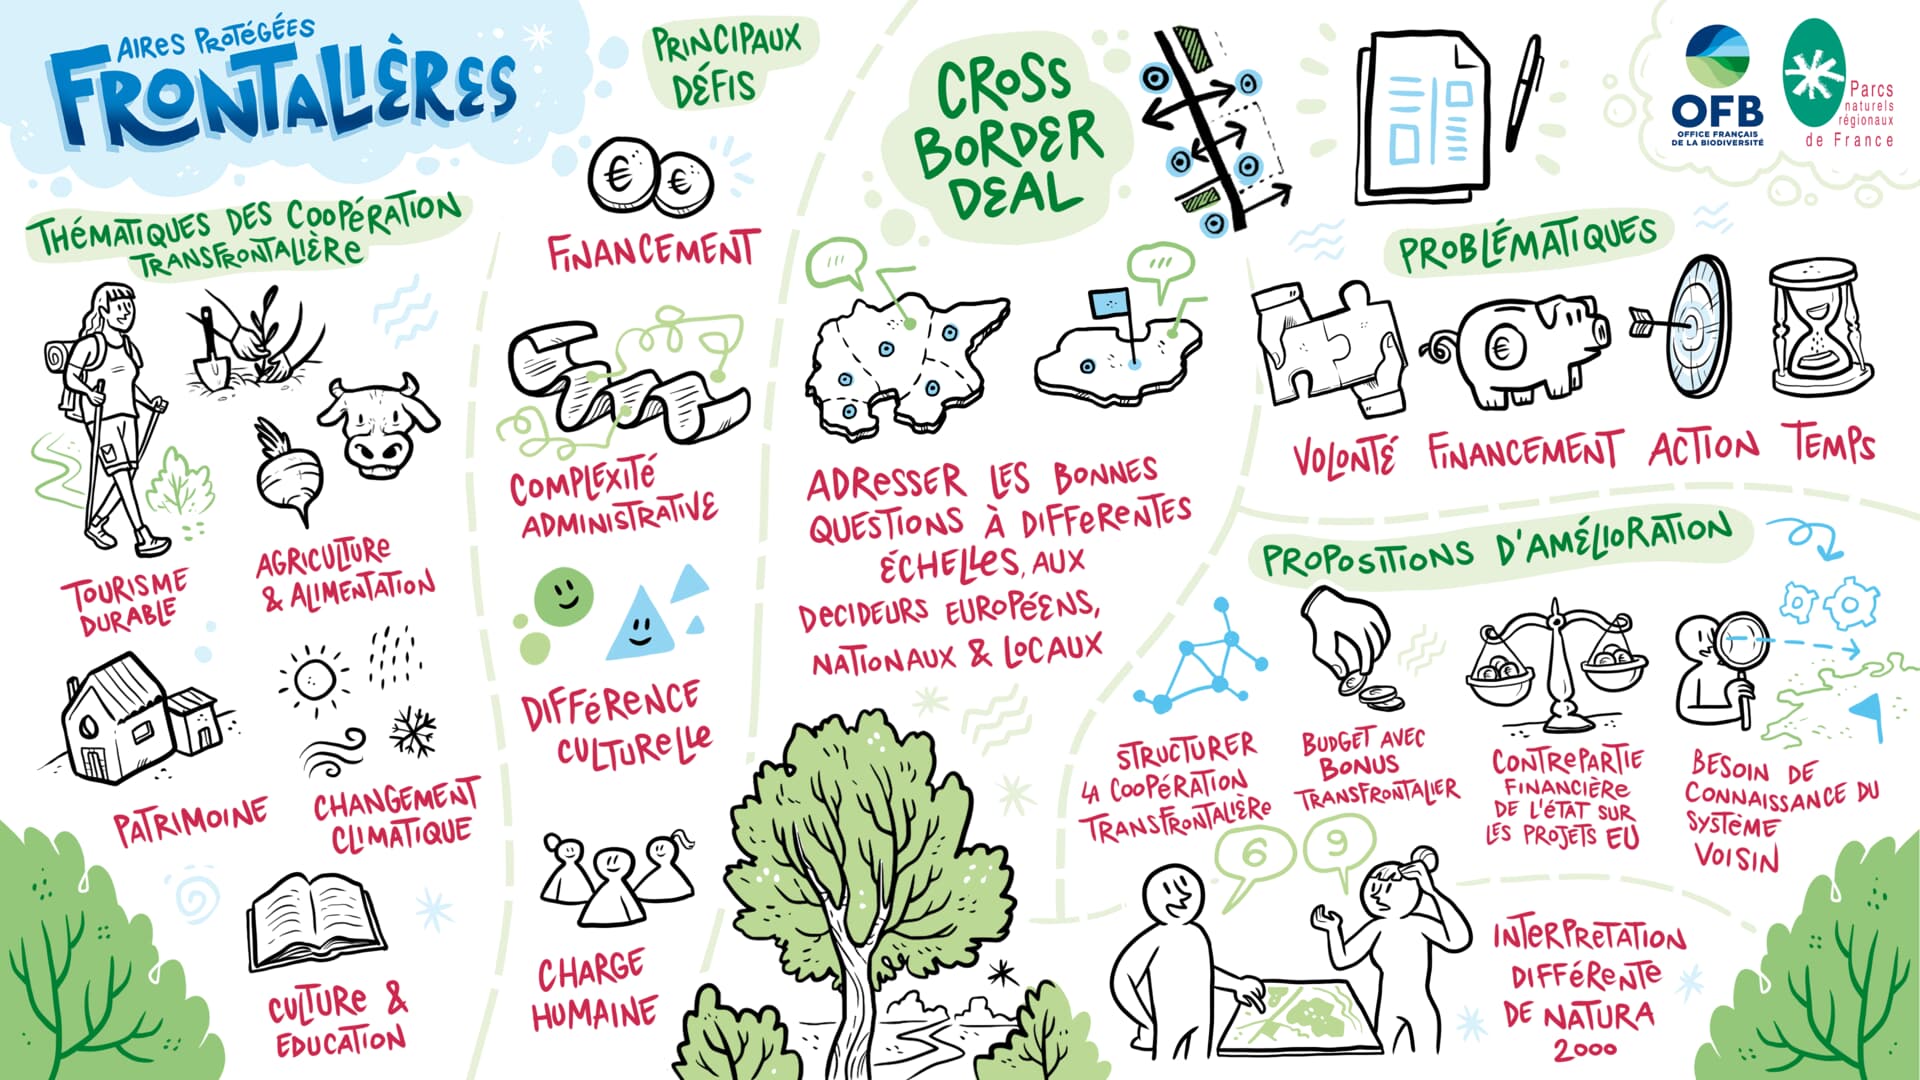 AIRES PROTÉGÉES
FRONTALIÈRES
THÉMATIQUES DES COOPÉRATION
TRANSFRONTALIÈRE
TOURISME
DURABLE
AGRICULTURE
& ALIMENTATION
PATRIMOINE
CHANGEMENT
CLIMATIQUE
CULTURE &
EDUCATION
PRINCIPAUX
DÉFIS
€ €
FINANCEMENT
COMPLEXITÉ
ADMINISTRATIVE
DIFFÉRENCE
CULTURELLE
CHARGE
HUMAINE
CROSS
BORDER
DEAL
ADRESSER LES BONNES
QUESTIONS À DIFFERENTES
ÉCHELLES, AUX
DECIDEURS EUROPÉENS,
NATIONAUX & LOCAUX
OFB
OFFICE FRANÇAIS
DE LA BIODIVERSITÉ
Parcs
naturels
régionaux
de France
PROBLÉMATIQUES
€
VOLONTÉ FINANCEMENT ACTION TEMPS
PROPOSITIONS D'AMÉLIORATION
STRUCTURER
LA COOPÉRATION
TRANSFRONTALIÈRE
BUDGET AVEC
BONUS
TRANSFRONTALIER
CONTREPARTIE
FINANCIÈRE
DE L'ÉTAT SUR
LES PROJETS EU
BESOIN DE
CONNAISSANCE DU
SYSTÈME
VOISIN
6 9
INTERPRETATION
DIFFÉRENTE
DE NATURA
2000